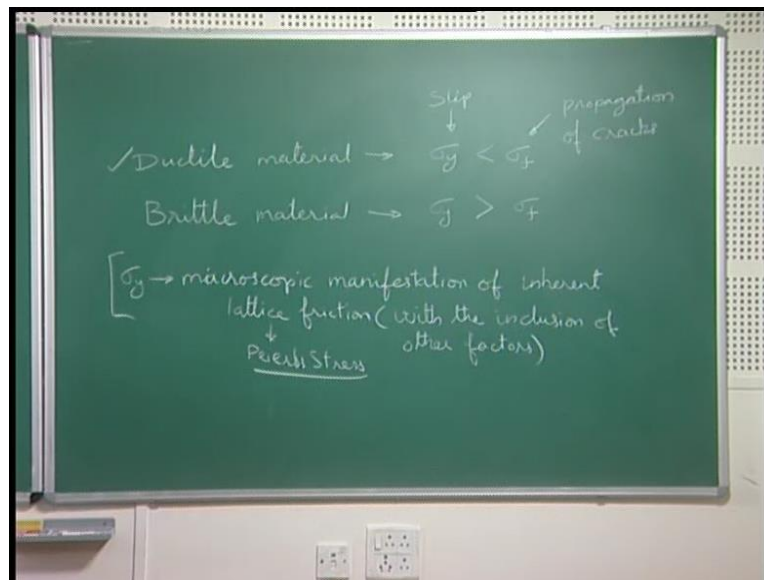 Slip
propagation
of cracks
↓
✓Ductile material → σy < σf
Brittle material → σy > σf
[σy → macroscopic manifestation of inherent
lattice friction (with the inclusion of
other factors)
↓
Peierls Stress